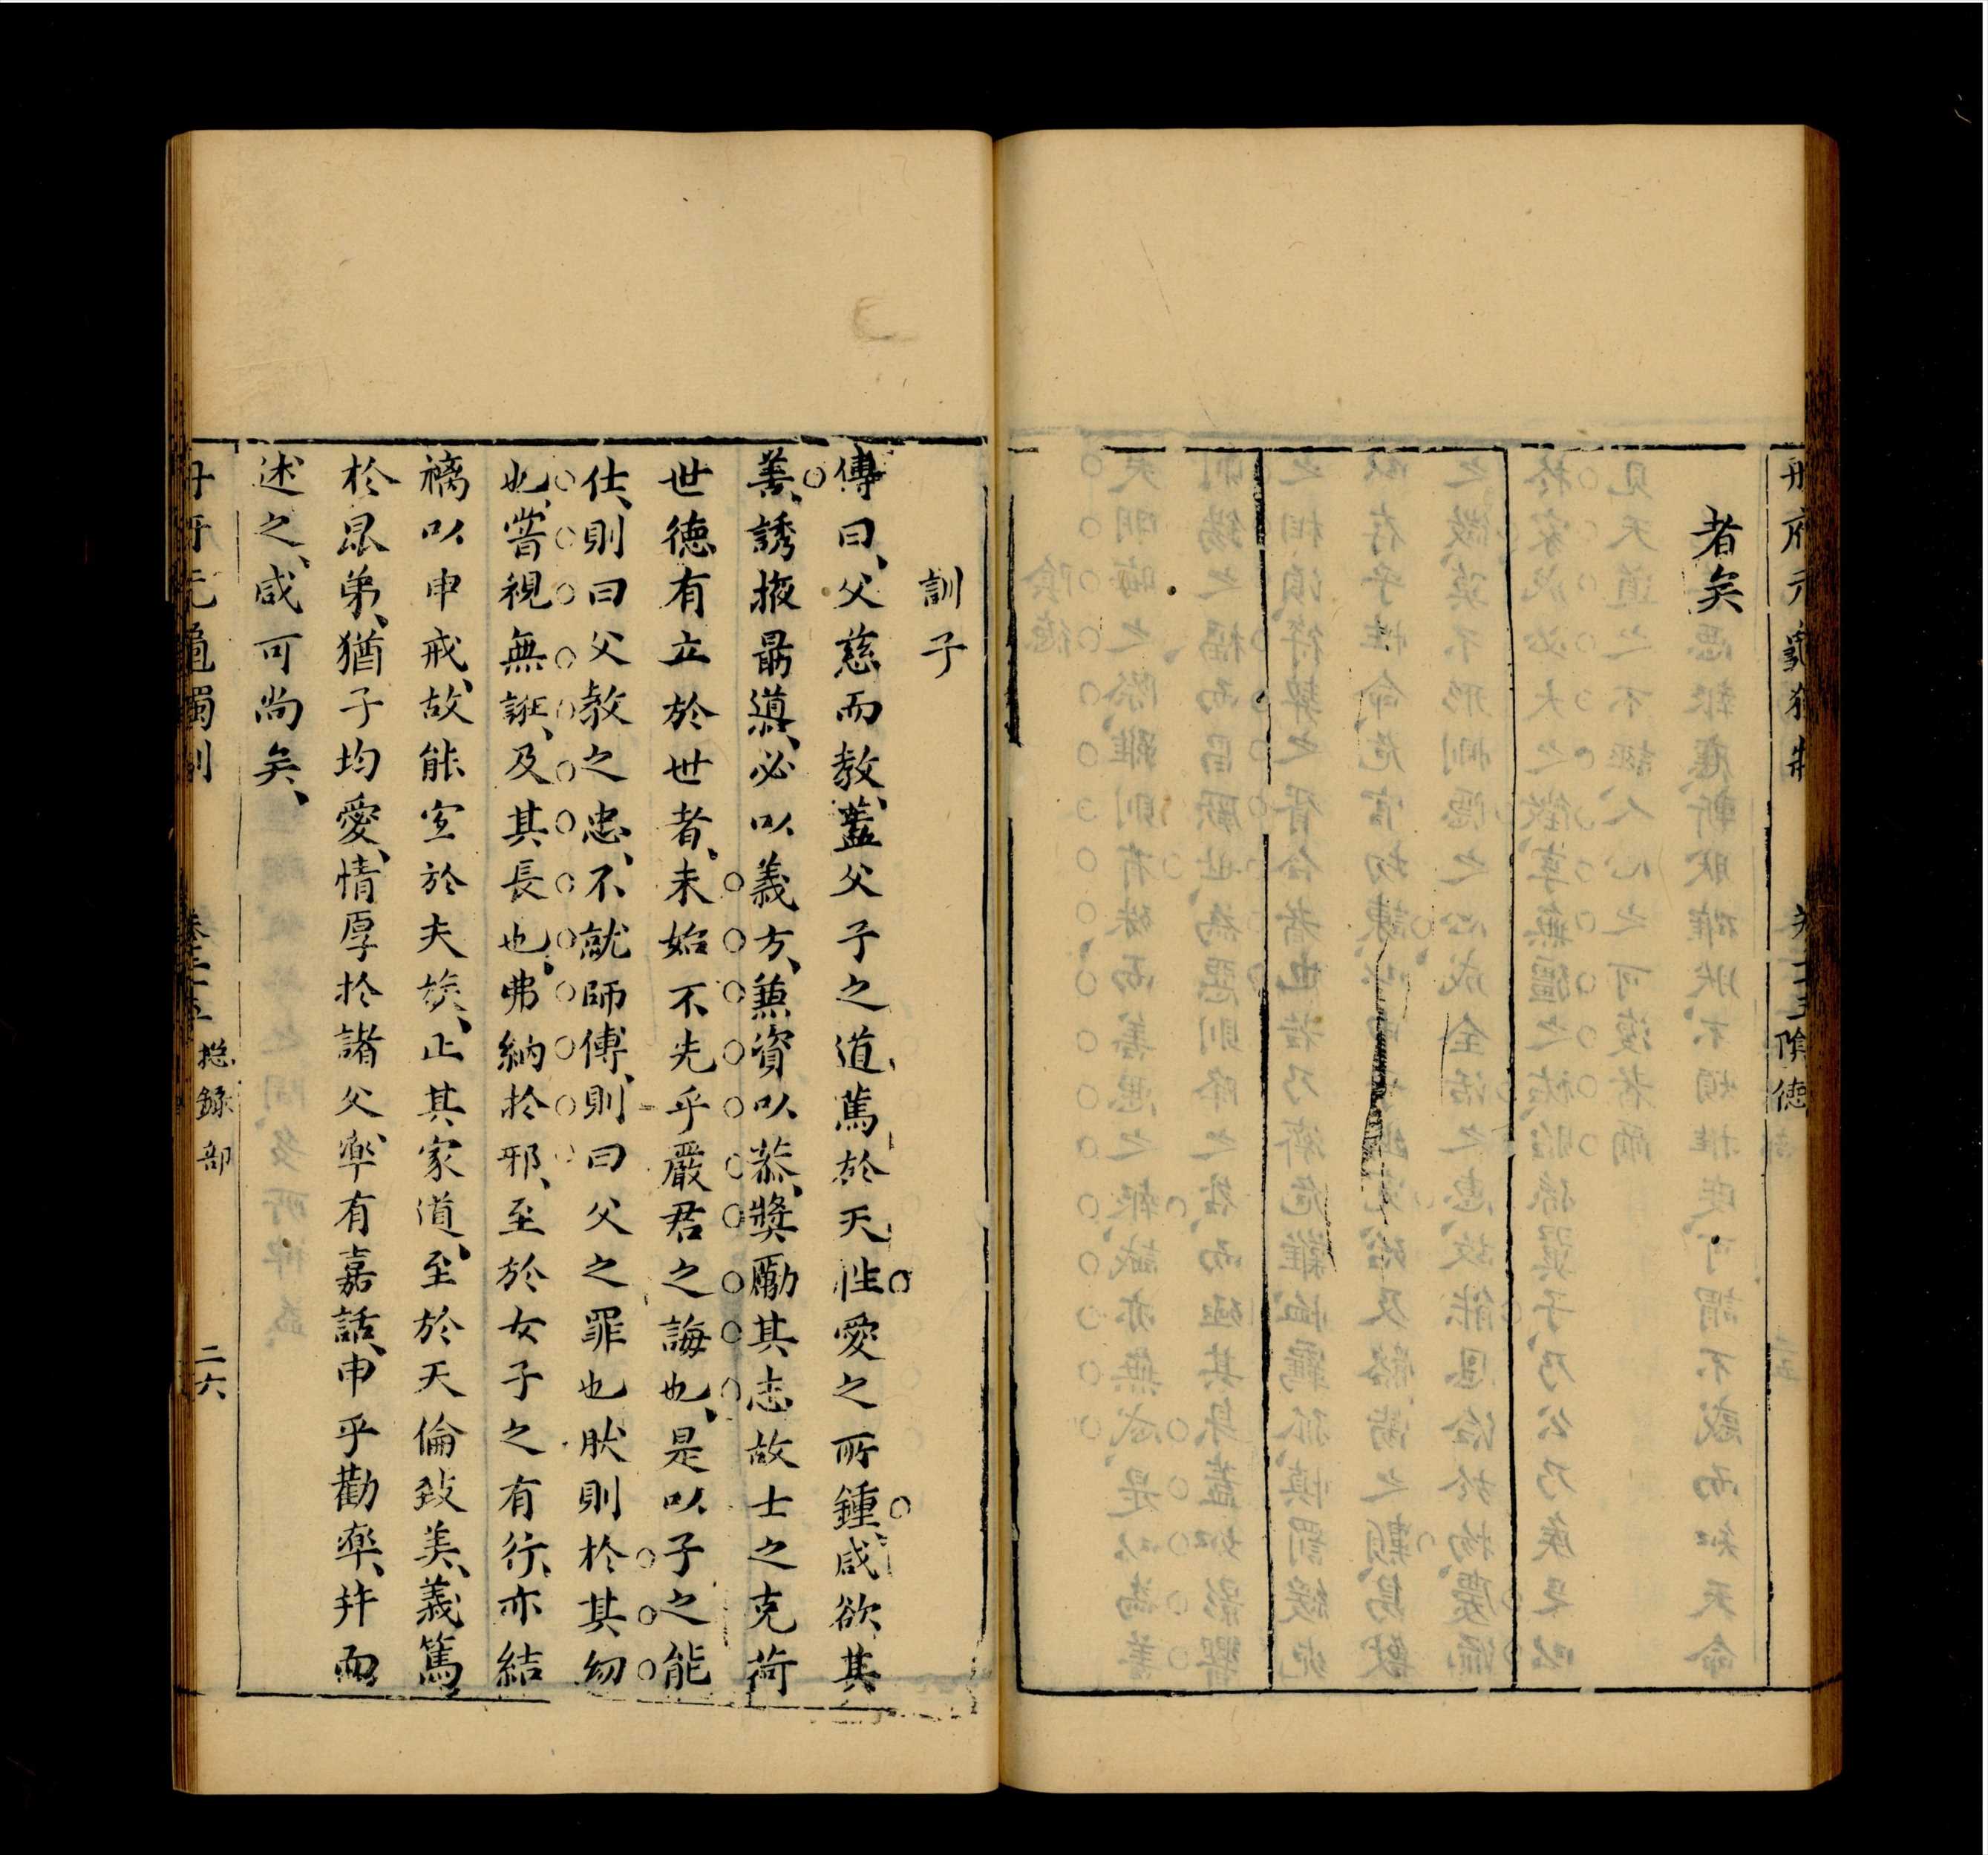 者矣
訓子
傳曰、父慈而教、蓋父子之道、篤於天性、愛之所鍾、咸欲其
善、誘掖勗導、必以義方、兼資以恭、獎勵其志、故士之克荷
世德有立於世者、未始不先乎嚴君之誨也、是以子之能
仕、則曰父教之忠、不就師傅、則曰父之罪也、肰則於其幼
也、嘗視無誑、及其長也、弗納於邪、至於女子之有行、亦結
褵以申戒、故能宜於夫族、止其家道、至於天倫致美、義篤
於昆弟、猶子均愛、情厚於諸父、率有嘉話、申乎勸率、并而
述之、咸可尚矣、
總錄部
二六